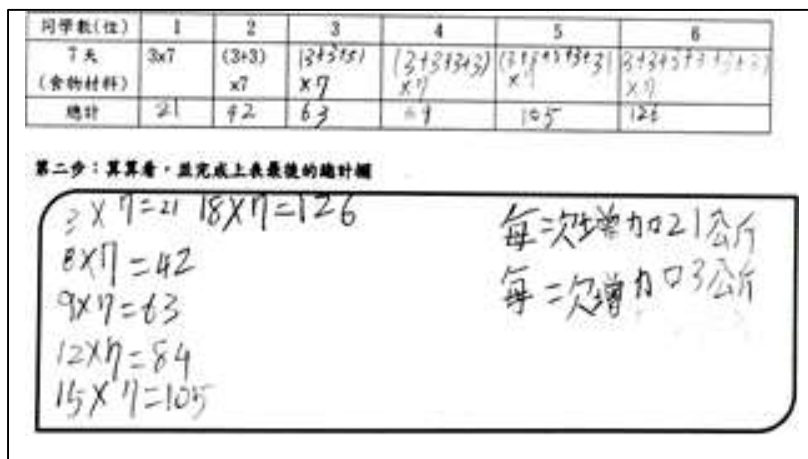 同學數(位) 1 2 3 4 5 6
7天 (食物材料) 3x7 (3+3) x7 (3+3+3) ×7 (3+3+3+3) ×7 (3+3+3+3+3) ×7 3+3+3+3+3+3) ×7
總計 21 42 63 105 126
第二步：算算看，並完成上表最後的總計欄
3×7=21 18×7=126
8×7=42
9×7=63
12×7=84
15×7=105
每次增加21公斤
每二次增加口3公斤